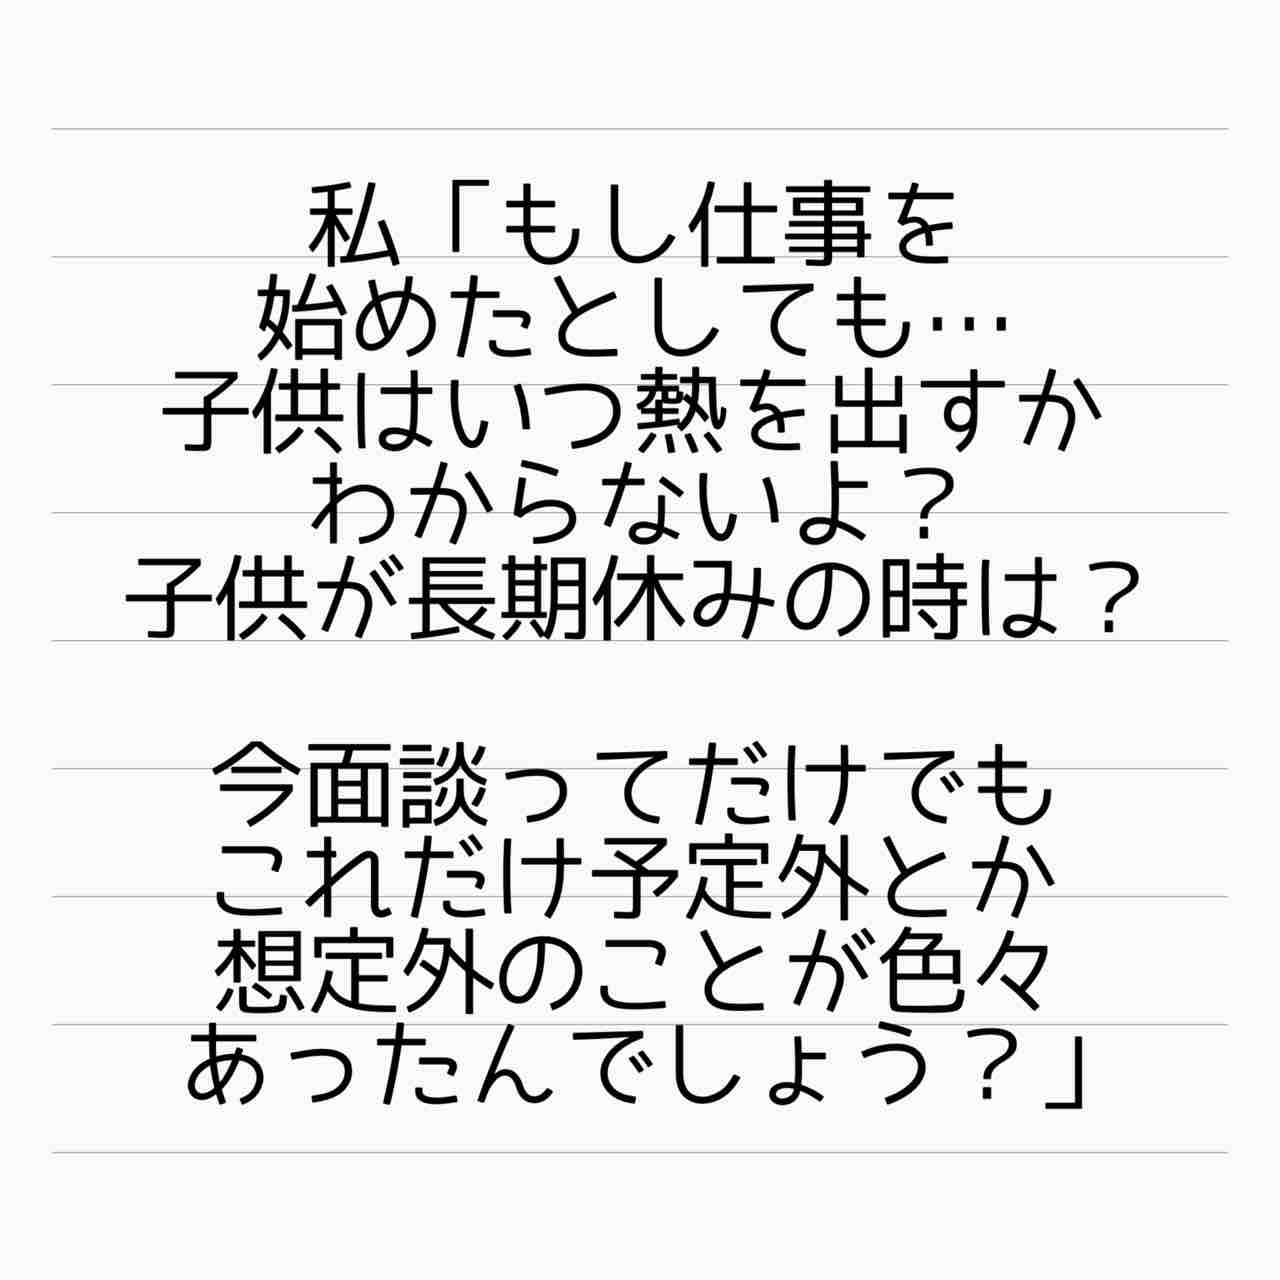 私「もし仕事を
始めたとしても…
子供はいつ熱を出すか
わからないよ？
子供が長期休みの時は？
今面談ってだけでも
これだけ予定外とか
想定外のことが色々
あったんでしょう？」